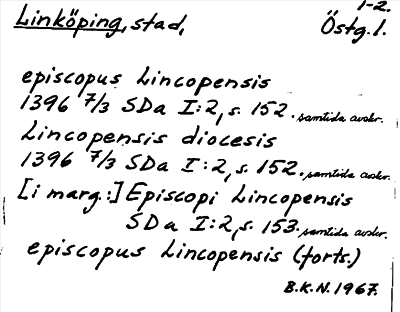 1-2.
Linköping, stad, Östg. l.
episcopus Lincopensis
1396 7/3 SDa I:2, s. 152. samtida avskr.
Lincopensis diocesis
1396 7/3 SDa I:2, s. 152. samtida avskr.
[i marg:] Episcopi Lincopensis
SDa I:2, s. 153. samtida avskr.
episcopus Lincopensis (forts.)
B.K.N. 1967.